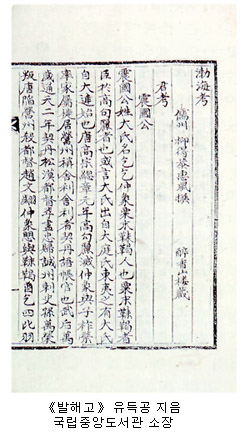 渤海考
儒州 柳得恭惠風撰
醉雪山樓藏
君考
震國公
震國公姓大氏名乞乞仲象粟末靺鞨人也粟末靺鞨者
臣於高句驪者也或言大氏出自大庭氏東夷之有大氏
自大連始也唐高宗總章元年高句驪滅仲象與子祚榮
率家屬徙居營州稱舍利舍利者契丹語帳官也武后萬
歲通天二年契丹松漠都督李盡忠歸誠州刺史孫萬榮
叛唐陷營州殺都督趙文翽仲象與靺鞨酋乞四比羽
《발해고》 유득공 지음
국립중앙도서관 소장